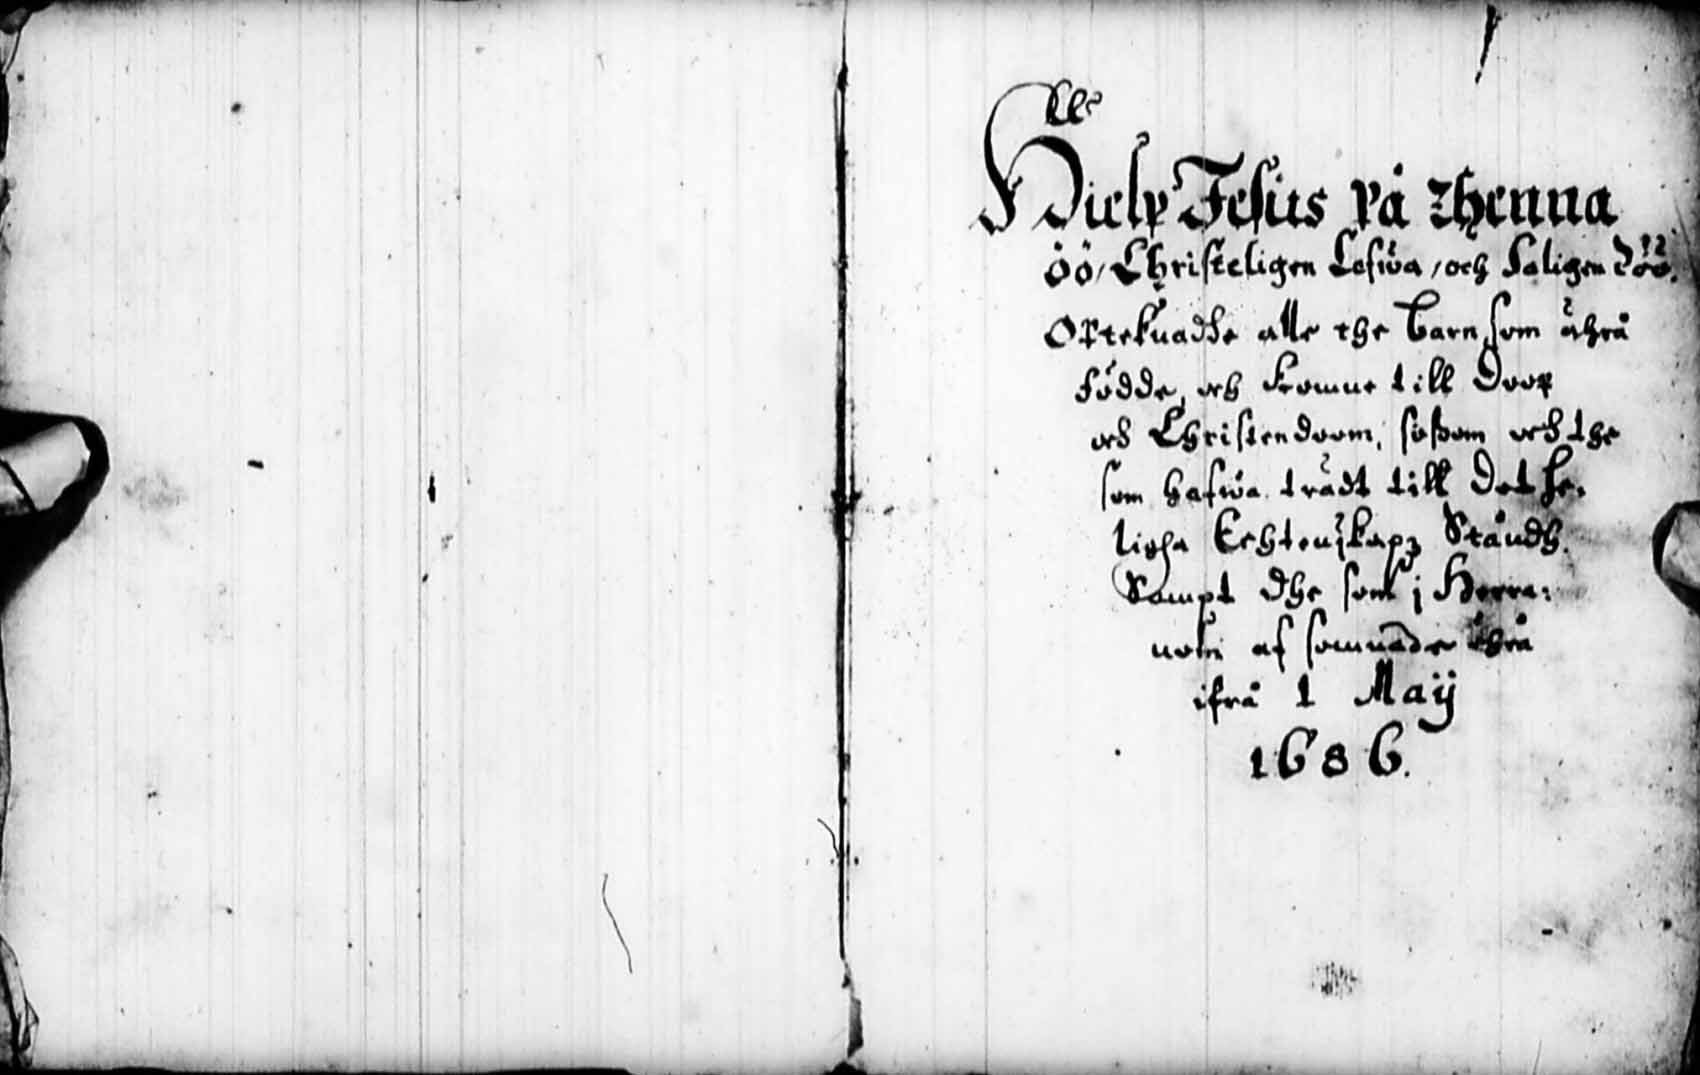 Hielp Jesus på thenna
öö, Christeligen Lefwa, och Saligen döö.
Opteknadhe alle the Barn som ähra
födde, och komne till Doop
och Christendoom, såsom och the
som hafwa trädt till Det he-
ligha Echtenskapz Ståndh.
Sampt dhe som j Herra-
nom af somnade ähra
ifrå 1 Maij
1686.